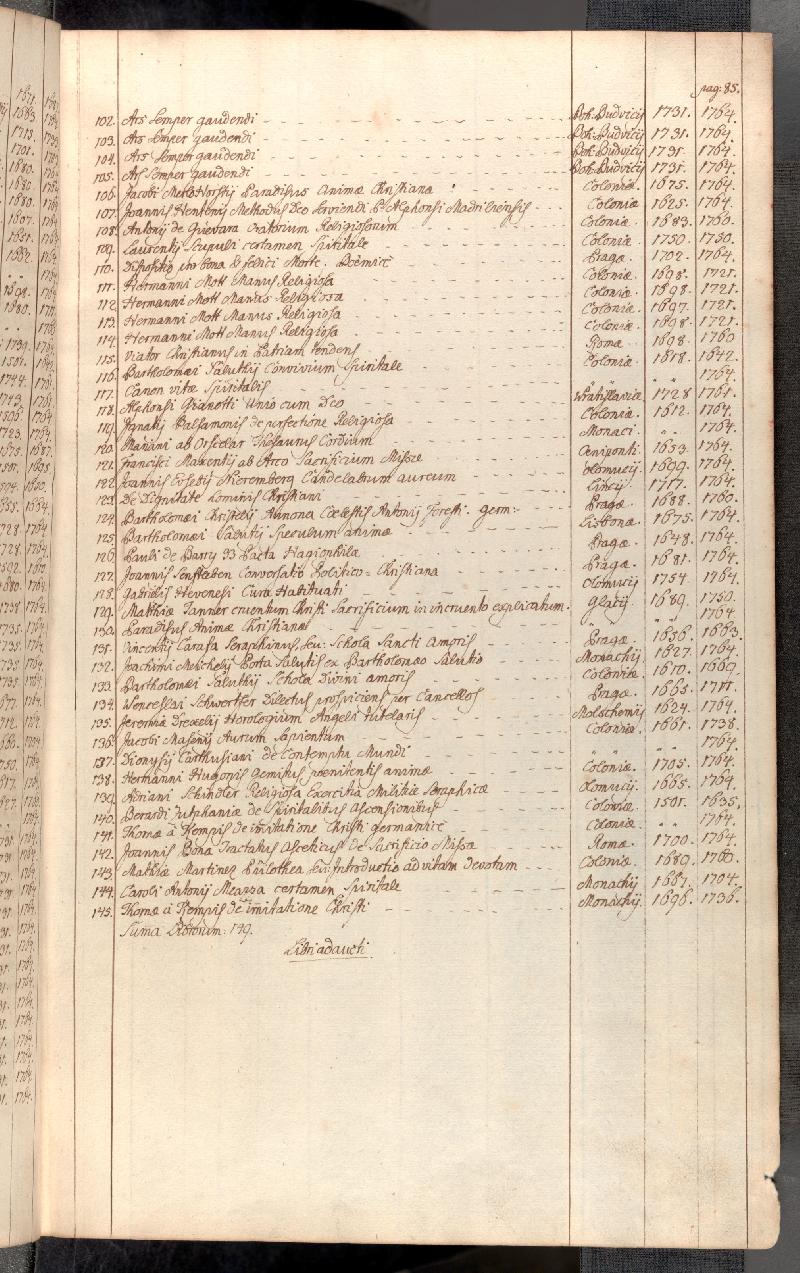 pag: 85.
102. Ars Semper gaudendi Boh: Budvicij 1731. 1764.
103. Ars Semper gaudendi Boh: Budvicij 1731. 1764.
104. Ars Semper gaudendi Boh: Budvicij 1731. 1764.
105. Ars Semper gaudendi Boh: Budvicij 1731. 1764.
106. Jacobi Merlo Horstij Paradisus Animæ Christianæ Coloniæ 1675. 1764.
107. Joannis Hentenij Methodus Deo Serviendi P. Alphonsi Madrilensis Coloniæ 1625. 1764.
108. Antonij de Guevara Oratorium Religiosorum Coloniæ 1683. 1760.
109. Laurentij Scupuli certamen Spiritale Coloniæ 1750. 1750.
110. Dispositio pro bona & felici Morte. Boëmicè Pragæ 1702. 1764.
111. Hermanni Mott Manus Religiosa Coloniæ 1698. 1721.
112. Hermanni Mott Manus Religiosa Coloniæ 1698. 1721.
113. Hermanni Mott Manus Religiosa Coloniæ 1697. 1721.
114. Hermanni Mott Manus Religiosa Coloniæ 1698. 1721.
115. Viator Christianus in Patriam tendens Romæ 1698. 1760
116. Bartholomæi Saluthij Convivium Spiritale Coloniæ 1618. 1642.
117. Canon vitæ Spiritalis " " 1764.
118. Alphonsi Gianotti Unio cum Deo Wratislaviæ 1728 1761.
119. Ignatij Balsamonis de perfectione Religiosa Coloniæ 1612. 1764.
120. Mariani ab Orscelar Thesaurus Cordium Monaci " " 1764.
121. Francisci Maxentij ab Arco Sacrificium Missæ Œniponti 1653. 1764.
122. Joannis Eusebij Nieremberg Candelabrum aureum Olomucij 1699. 1764.
123. De Dignitate hominis Christiani Lincij 1717. 1764.
124. Bartholomæi Christelij Annona Cœlestis Antonij Foresti. germ: Pragæ 1688. 1760.
125. Bartholomæi Salutij Speculum animæ Lisbonæ 1675. 1764.
126. Pauli de Barry 33 Pacta Hagiophilæ Pragæ 1648. 1764.
127. Joannis Senftleben Conversatio Politico-Christiana Pragæ 1681. 1764.
128. Gabrielis Hevenesi Cura Habituati Olomucij 1754. 1764.
129. Matthiæ Tanner cruentum Christi Sacrificium in incruento explicatum. Glacij 1689. 1750.
130. Paradisus Animæ Christianæ " " 1764
131. Vincentij Carafa Seraphinus, seu Schola Sancti amoris Pragæ 1656. 1663.
132. Joachimi Melchelij Porta Salutis ex Bartholomæo Salutio Monachij 1627. 1764.
133. Bartholomæi Saluthij Schola Divini amoris Coloniæ 1610. 1669.
134. Wenceslai Schwertfer Dilectus prospiciens per Cancellos Pragæ 1665. 1711.
135. Jeremiæ Drexelij Horologium Angeli tutelaris Molschemij 1624. 1764.
136. Jacobi Masenij Aurum Sapientum Coloniæ 1661. 1738.
137. Dionysij Carthusiani de Contemptu Mundi " " 1764.
138. Hermanni Hugonis gemitus pœnitentis animæ Coloniæ 1705. 1764.
139. Adriani Schindler Religiosa Exercitia Militiæ Seraphicæ Olomucij 1665. 1764.
140. Gerardi Zutphaniæ de Spiritalibus Ascensionibus Coloniæ 1501. 1635.
141. Thomæ à Kempis De imitatione Christi germanicè Coloniæ " " 1764.
142. Joannis Bona Tractatus Asceticus de Sacrificio Missæ Romæ 1700. 1764.
143. Mathiæ Martinez Philothea seu: Introductio ad vitam devotam Coloniæ 1689. 1760.
144. Caroli Antonij Meazza certamen Spiritale Monachij 1667. 1704.
145. Thomæ à Kempis de imitatione Christi Monachij 1696. 1736.
Suma Librorum: 149.
Libri adaucti.